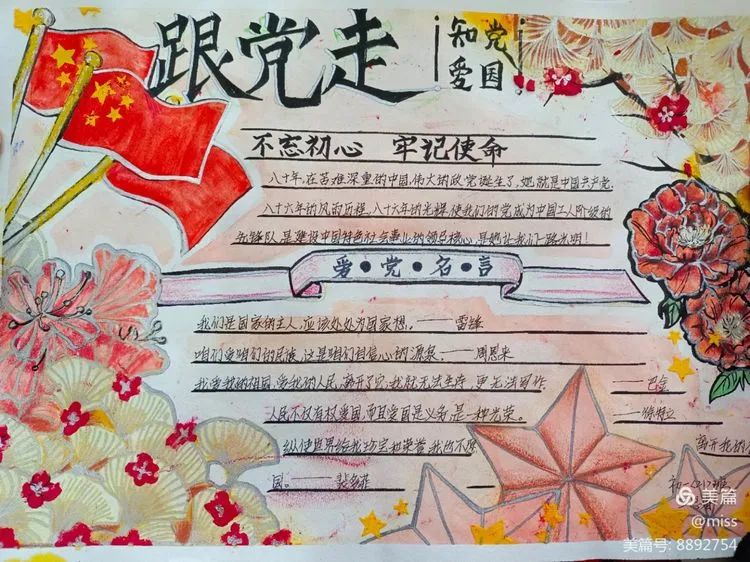 跟党走
知党
爱国
不忘初心 牢记使命
八十年,在苦难深重的中国,伟大的政党诞生了,她就是中国共产党.
八十六年的风雨历程,八十六年的光辉,使我们的党成为中国工人阶级的
先锋队,是建设中国特色社会事业的领导核心,是她让我们一路光明!
爱·党·名·言
我们是国家的主人,应该处处为国家想。——雷锋
咱们爱咱们的民族,这是咱们自信心的源泉。——周恩来
我爱我的祖国,爱我的人民,离开了它,我就无法生存,更无法写作 ——巴金
人民不仅有权爱国,而且爱国是义务,是一种光荣。 ——徐特立
纵使世界给我珍宝和荣誉,我也不愿 离开我的
国。——裴多菲
美篇
@miss
美篇号: 8892754